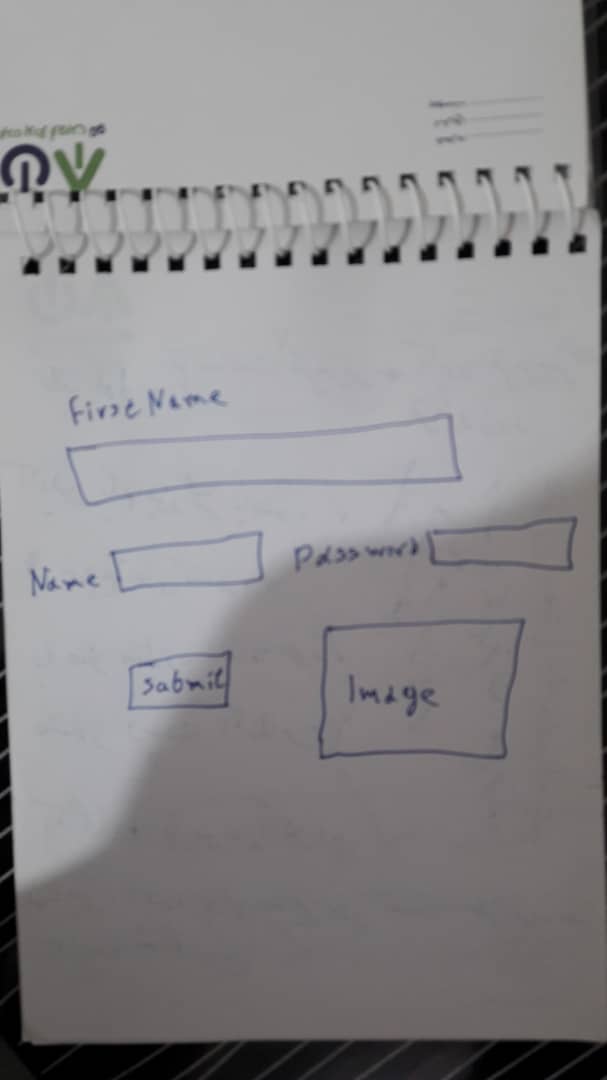 First Name
Name Password
Submit Image